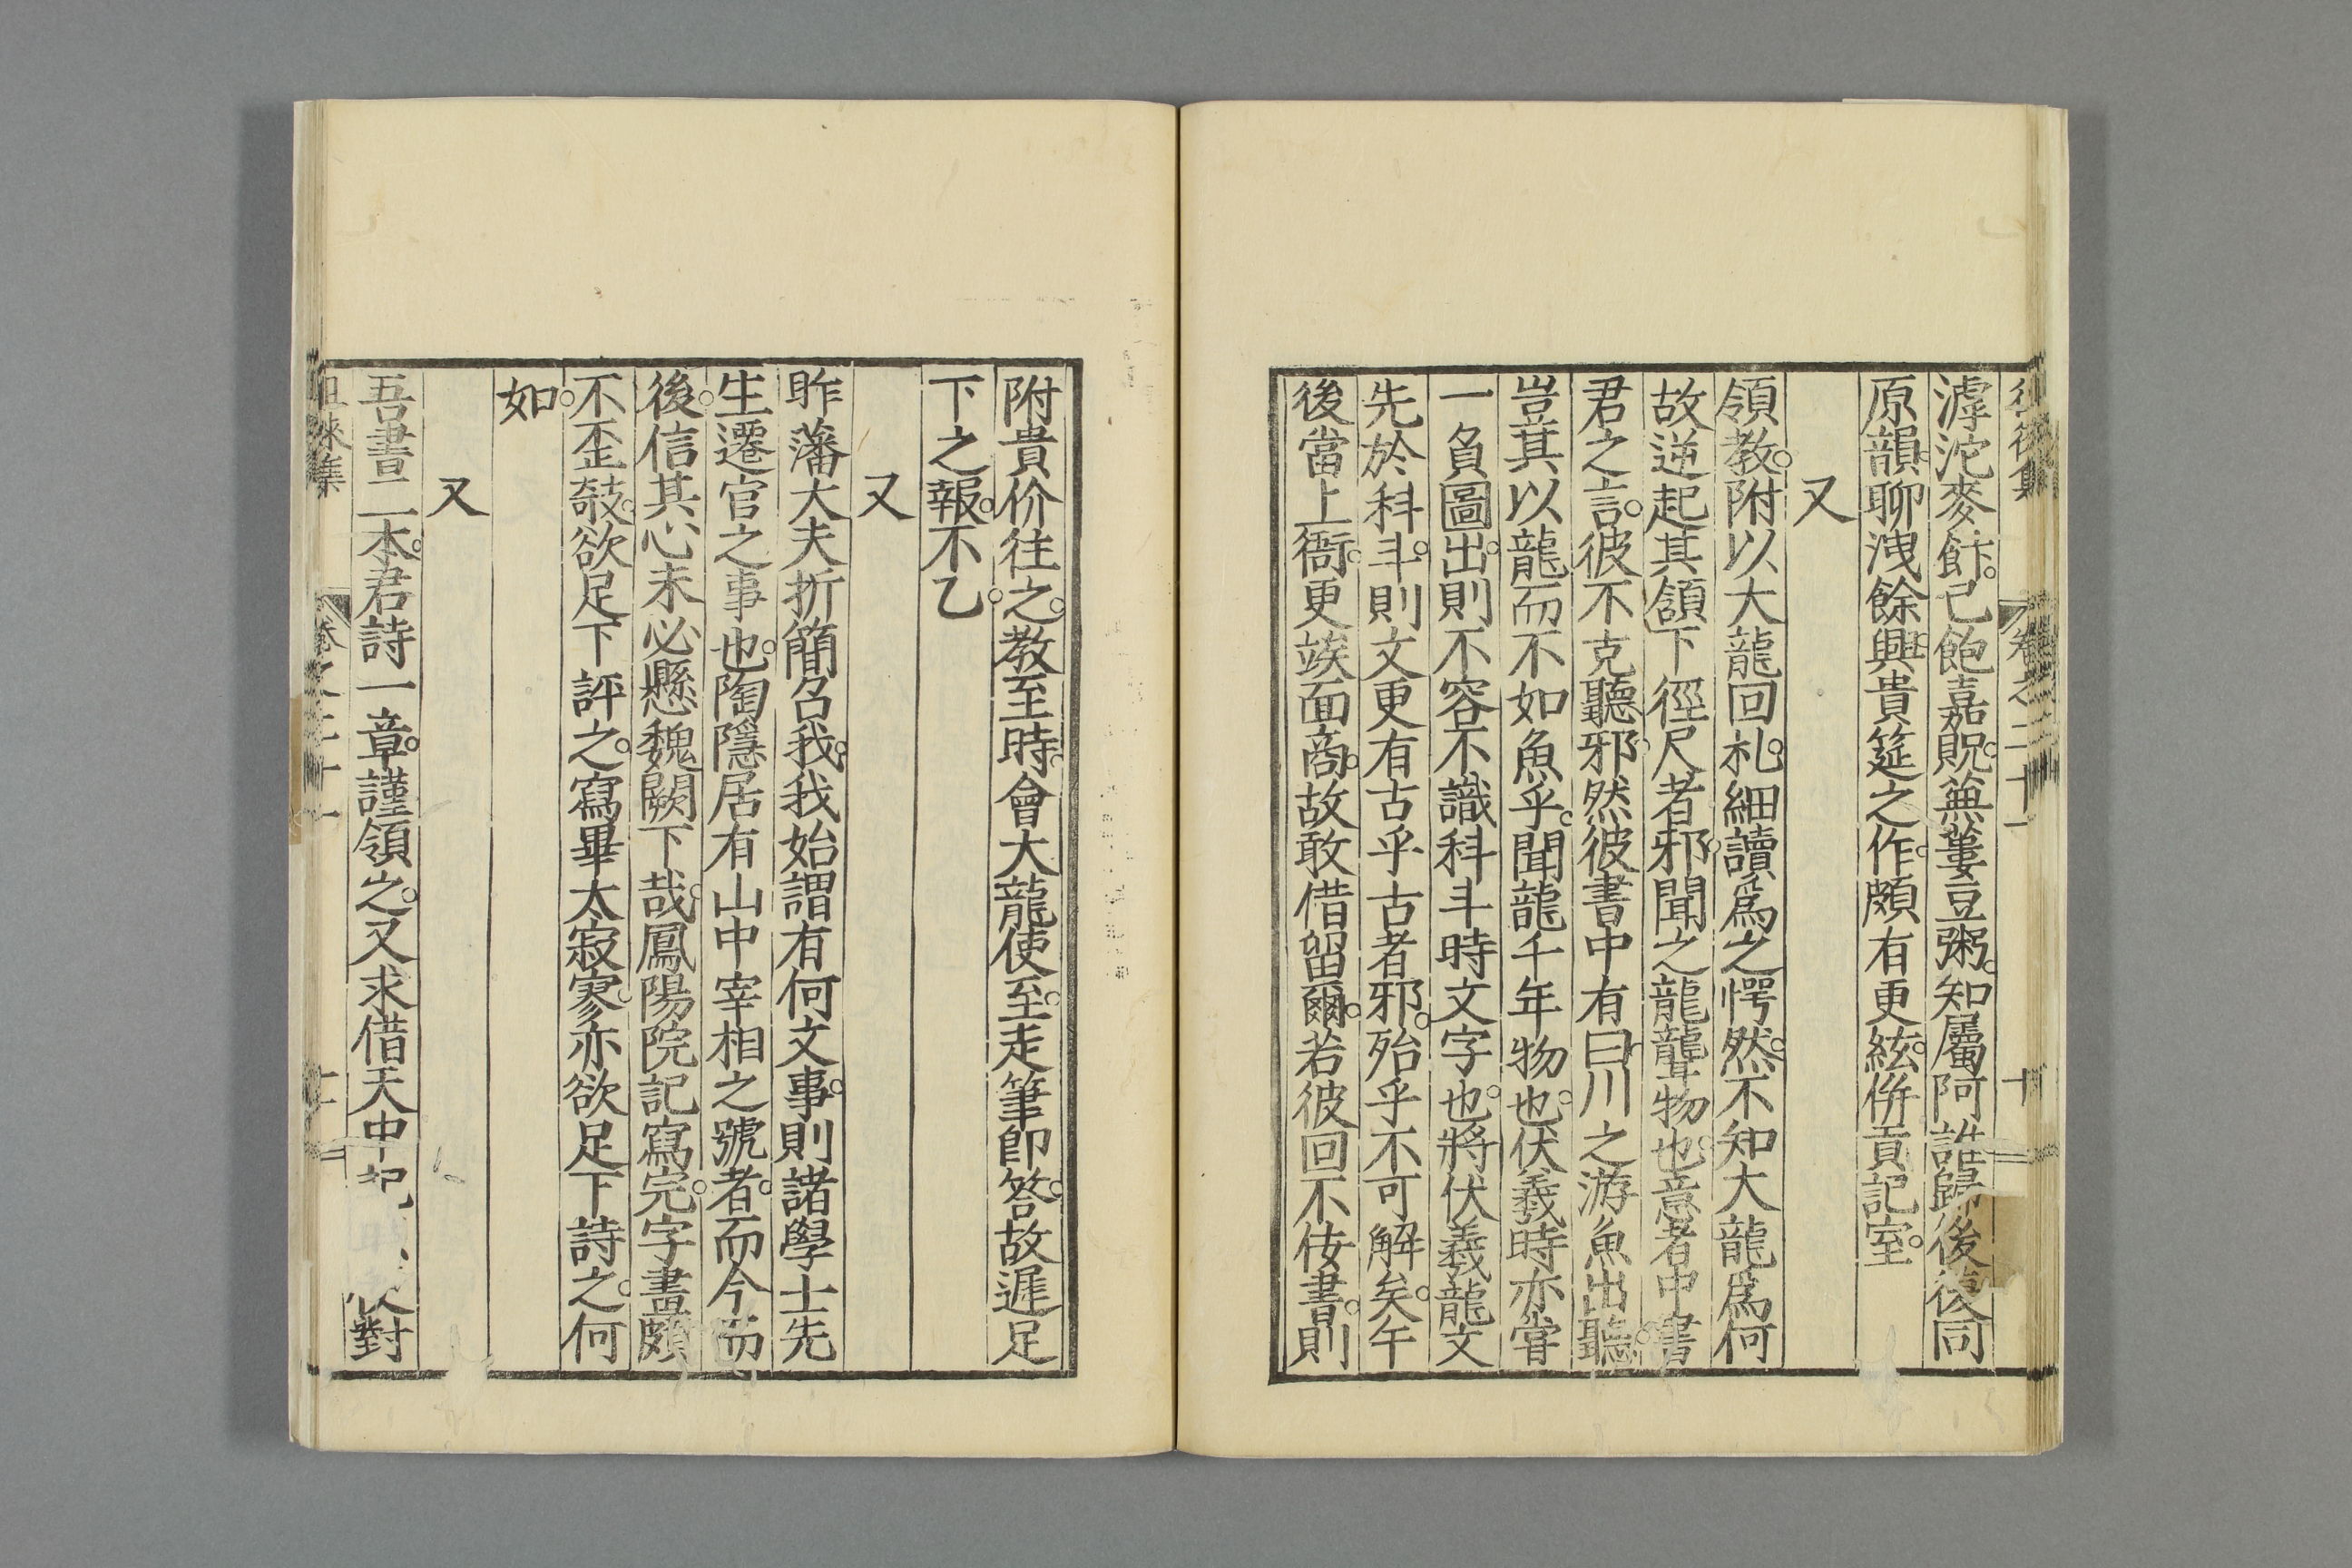 滹沱麥飰。己飽嘉貺。蕪蔞豆粥。知屬阿誰歸後復同
原韻。聊洩餘興。貴筵之作。頗有更絃。倂貢記室。
又
領教。附以大龍回札。細讀爲之愕然。不知大龍爲何
故逆起其頷下徑尺者邪。聞之龍聾物也。意者中書
君之言。彼不克聽邪。然彼書中有曰川之游魚出聽。
豈其以龍而不如魚乎。聞龍千年物也。伏羲時亦嘗
一負圖出。則不容不識科斗時文字也。將伏羲龍文
先於科斗。則文更有古乎古者邪。殆乎不可解矣。午
後當上衙。更竢面商。故敢借留爾。若彼回不侫書。則
附貴价往之。教至時。會大龍使至。走筆卽答。故遲足
下之報。不乙。
又
昨藩大夫折簡召我。我始謂有何文事。則諸學士先
生遷官之事也。陶隱居有山中宰相之號者。而今而
後。信其心未必懸魏闕下哉。鳳陽院記寫完。字畫頗
不歪攲。欲足下評之。寫畢太寂寥。亦欲足下詩之。何
如。
又
吾書二本。君詩一章。謹領之。又求借天中記 對
徂徠集 卷之二十一